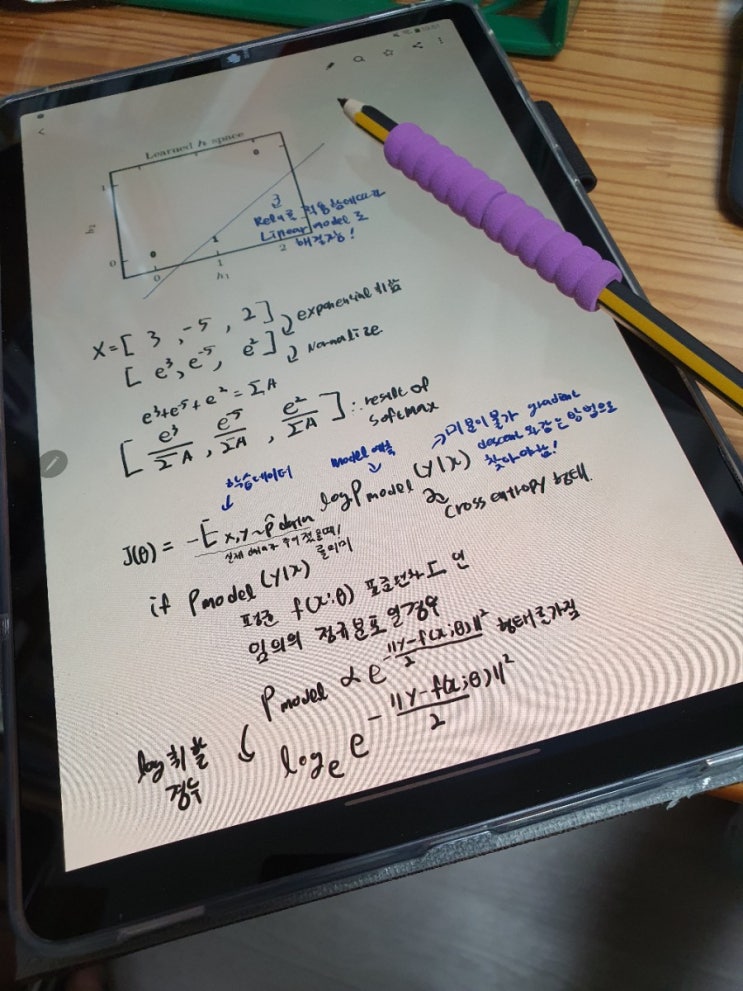 Learned h space
1
h₂
0
0
1
2
h₁
Relu로 적용함에따라
Linear model로
해결가능!
X = [ 3 , -5 , 2 ] exponential 취함
[ e³, e⁻⁵, e² ] Normalize.
e³+e⁻⁵+e² = ΣA
[ e³/ΣA , e⁻⁵/ΣA , e²/ΣA ] : result of
softmax
학습데이터
model 예측
미분이 불가 gradient
descent 와 같은 방법으로
찾아야함!
J(θ) = -E x,y~p̂data log Pmodel (y|x)
Cross entropy 형태.
실제 data가 주어졌을때
if Pmodel (y|x)
평균 f(x;θ) 표준편차 I 인
임의의 정규분포 일경우
Pmodel ∝ e^-‖y-f(x;θ)‖²/2 형태를가짐
log 취할
경우
logₑ e^-‖y-f(x;θ)‖²/2